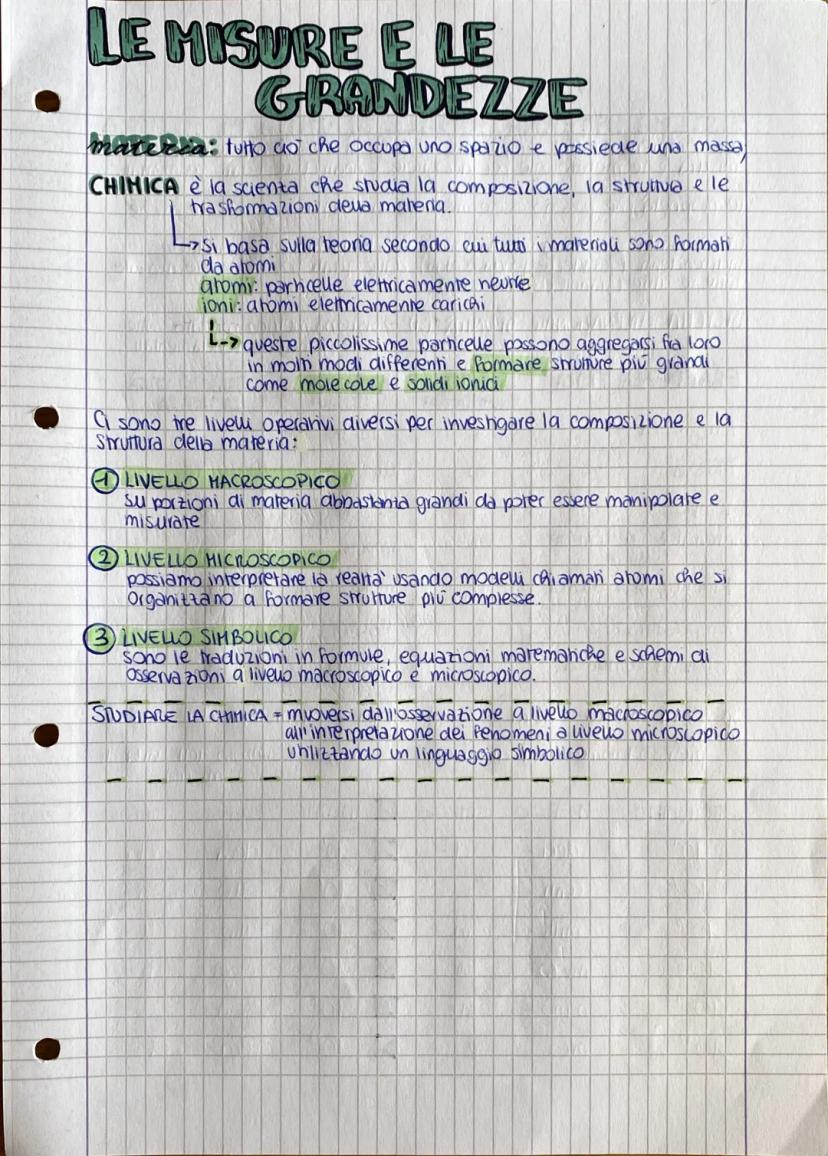 LE MISURE E LE
GRANDEZZE
materia: tutto ciò che occupa uno spazio e possiede una massa,
CHIMICA è la scienza che studia la composizione, la struttura e le
trasformazioni della materia.
↳ si basa sulla teoria secondo cui tutti i materiali sono formati
da atomi
atomi: particelle elettricamente neutre
ioni: atomi elettricamente carichi
↳ queste piccolissime particelle possono aggregarsi fra loro
in molti modi differenti e formare strutture più grandi
come molecole e solidi ionici
Ci sono tre livelli operativi diversi per investigare la composizione e la
struttura della materia:
1 LIVELLO MACROSCOPICO
su porzioni di materia abbastanza grandi da poter essere manipolate e
misurate
2 LIVELLO MICROSCOPICO
possiamo interpretare la realtà usando modelli chiamati atomi che si
organizzano a formare strutture più complesse.
3 LIVELLO SIMBOLICO
sono le traduzioni in formule, equazioni matematiche e schemi di
osservazioni a livello macroscopico e microscopico.
STUDIARE LA CHIMICA = muoversi dall'osservazione a livello macroscopico
all'interpretazione dei fenomeni a livello microscopico
utilizzando un linguaggio simbolico